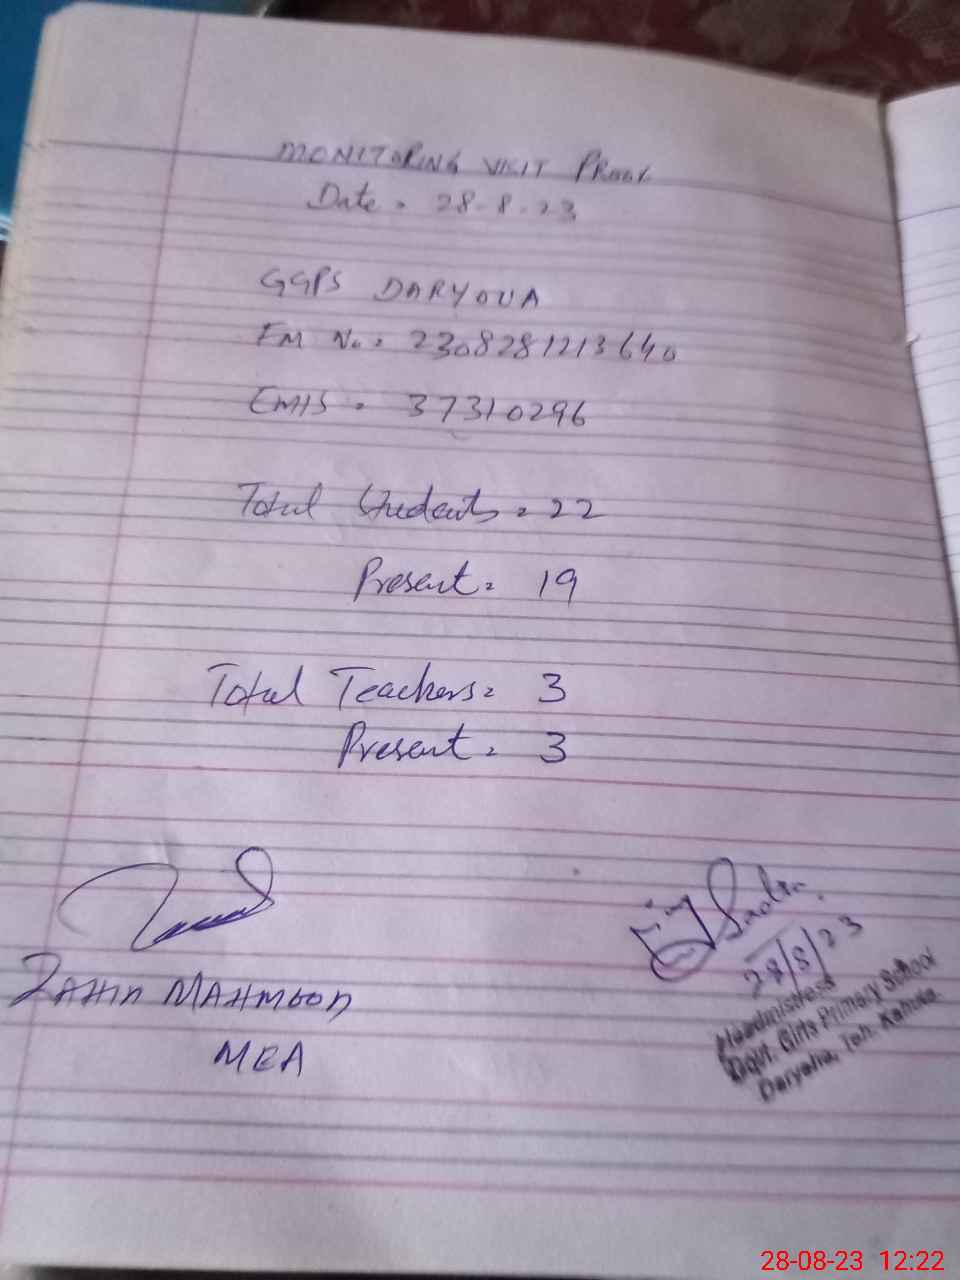 MONITORING VISIT PROOF
Date = 28-8-23
GGPS DARYOUA
EM No = 2308281213640
EMIS = 37310296
Total Students = 22
Present = 19
Total Teachers = 3
Present = 3
ZAHID MAHMOOD
MEA
28/8/23
Headmistress
Govt. Girls Primary School
Teh. Kahuta
28-08-23 12:22